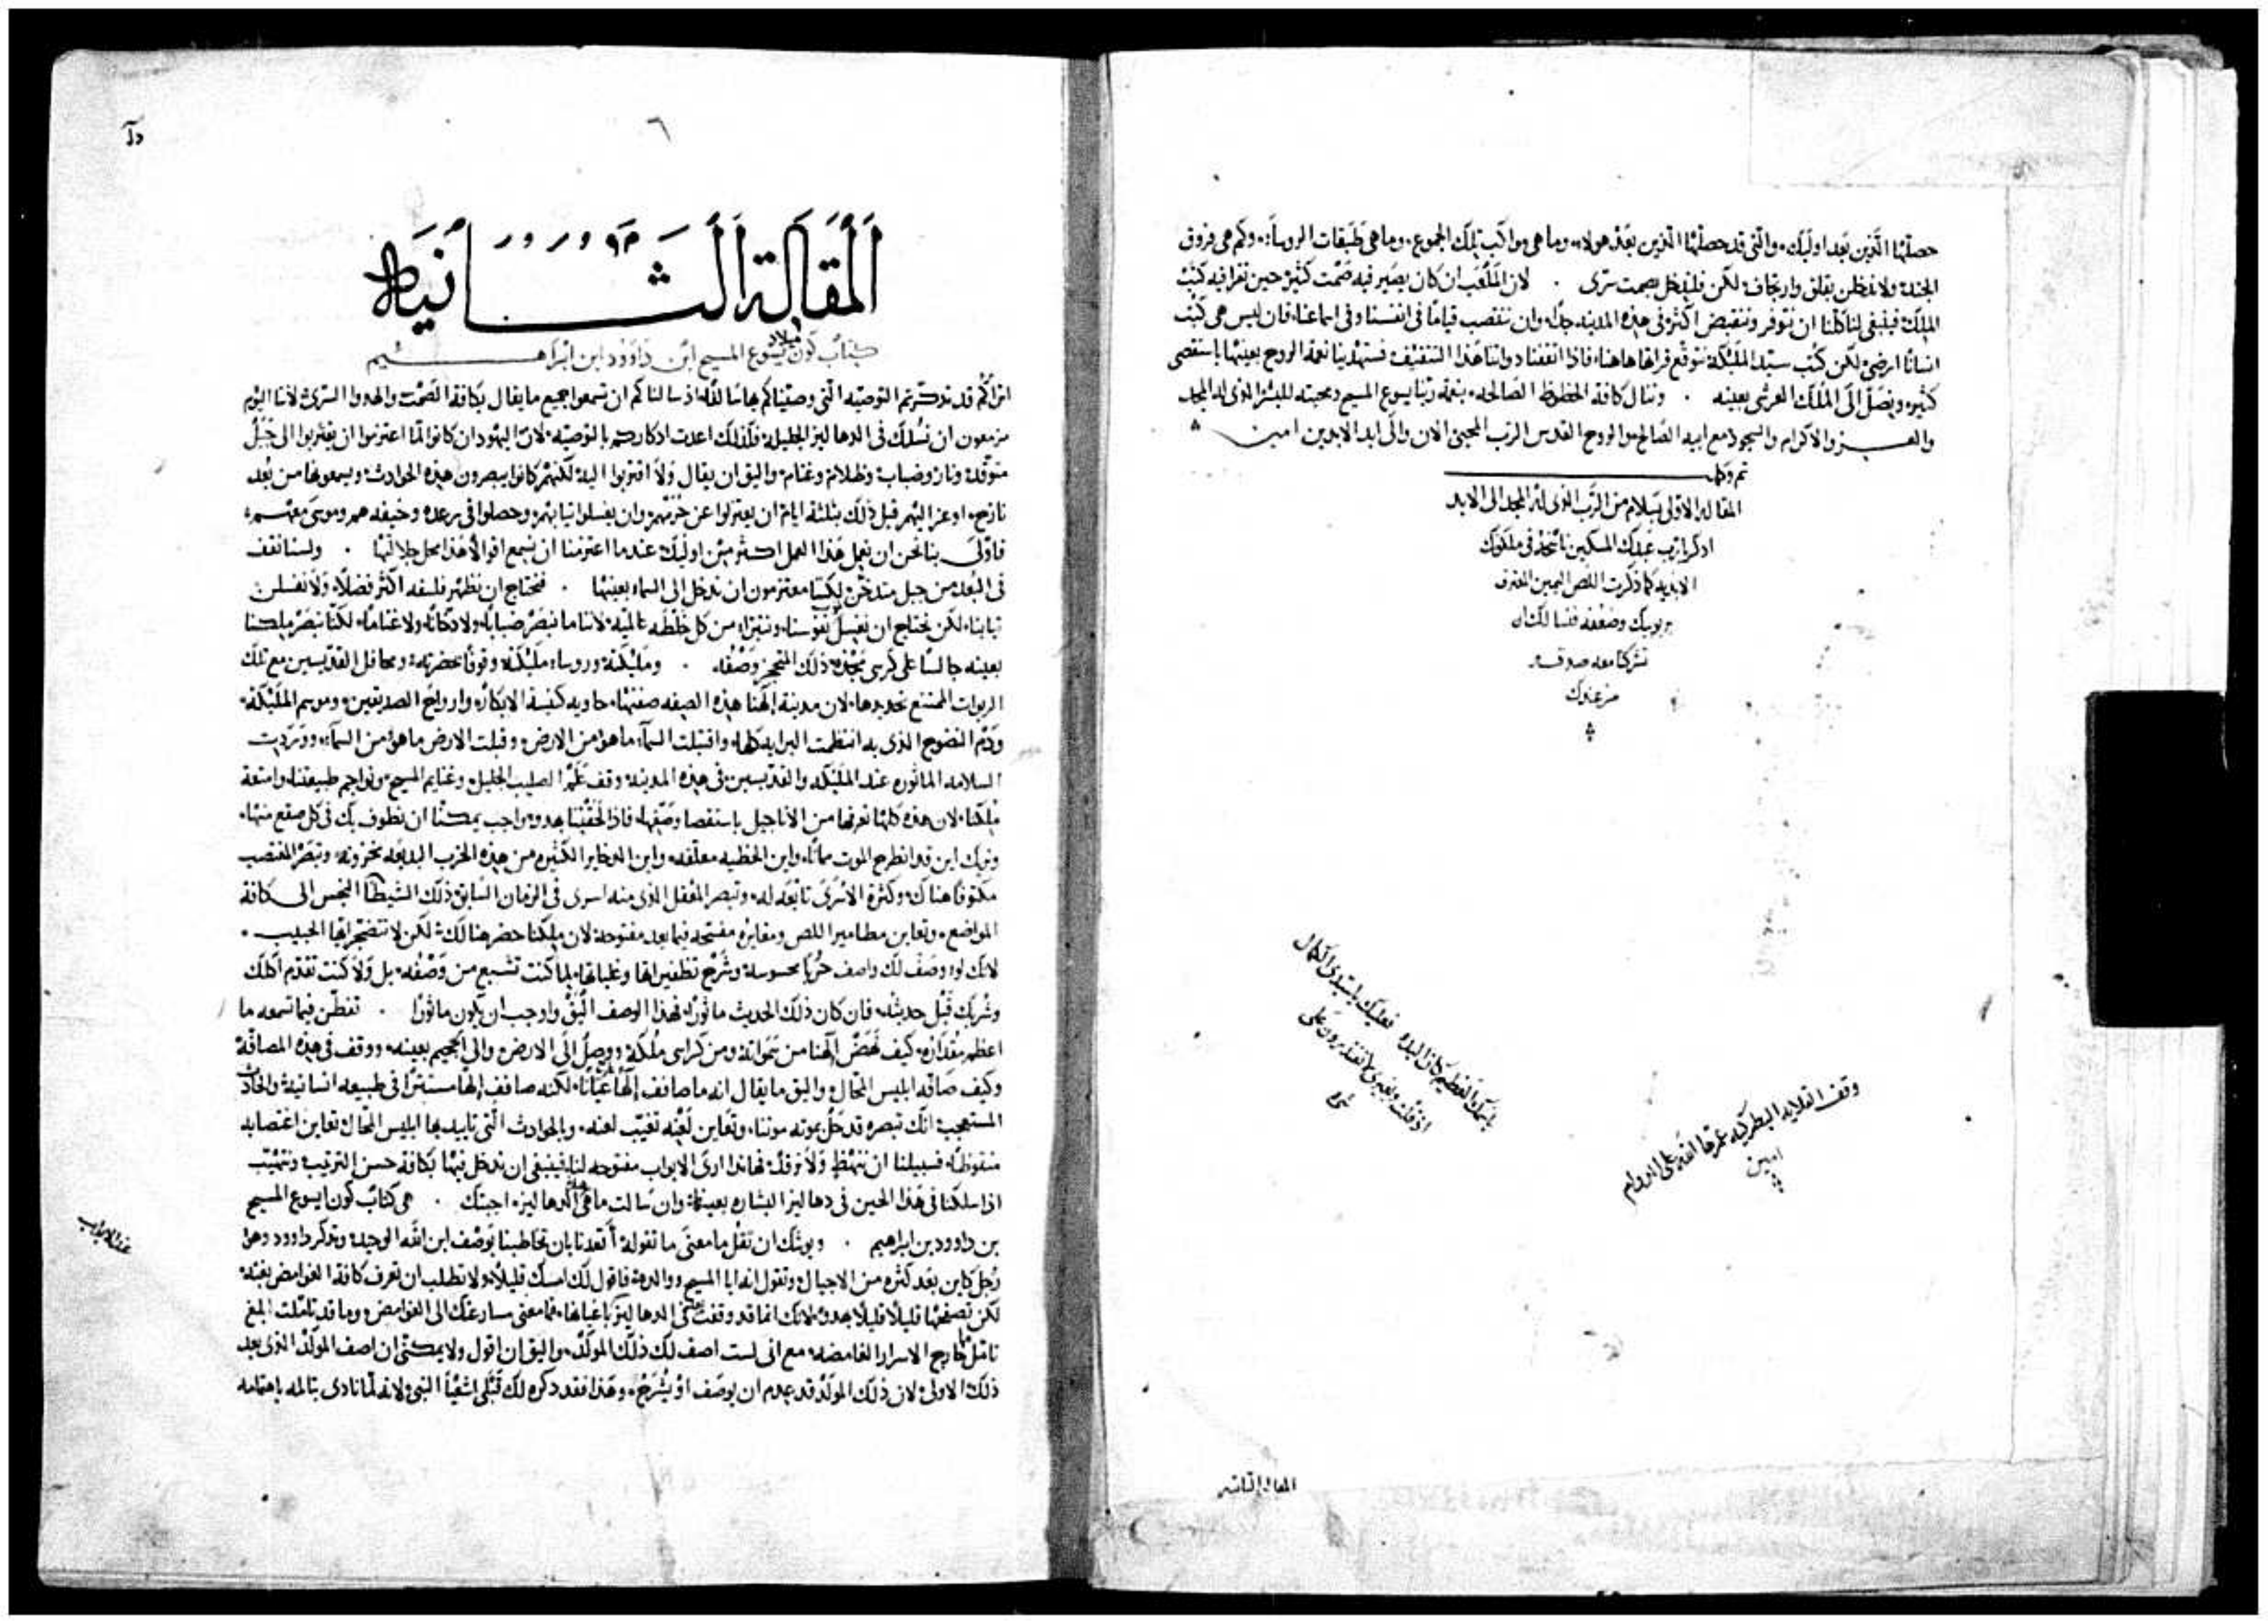 حصلتها الذين بعد اوليك، والتي قد حصلتها الذين بعد هولاء، وما هي مواكب تلك الجموع، وما هي طبقات الروسآء، وكم هي فروق
ولا نفطن بقلق وارتجاف لكن فلندخل بصمت سري . لان الملعب ان كان يصير فيه صمت كثير حين تقرا فيه كتب
الملك فينبغي لنا كلنا ان نتوقر وننقبض اكثر في هذه المدينه جدا، وان ننتصب قيامًا في انفسنا وفي اسماعنا، فان ليس هي كتب
انسانًا ارضي، لكن كتب سيد الملئكة نتوقع قراتها هاهنا، فاذا اتقفنا ذواتنا هذا التثقيف فستهدينا نعمة الروح بعينها باستقصى
كثير، ونصل الى الملك العرشي بعينه . وننال كافة الحظوظ الصالحه، بنعمة ربنا يسوع المسيح ومحبته للبشر الذي له المجد
والعـــز والاكرام والسجود مع ابيه الصالح والروح القدس الرب المحيي الان والى ابد الابدين امين
تم وكمل
المقاله الاولى بسلام من الرب الذي له المجد الى الابد
اذكر يارب عبدك المسكين ناسخه في ملكوتك
الابديه كما ذكرت اللص اليمين المعترف
بربوبيتك وضعفه فنسالك ان
تشركنا معه
وقف القلايه البطركيه عمرها الله على الدوام
امين
المقاله الثانيه
٦
اَلْمَقَالَة اَلثَّانيَة
كتاب كون ميلاد يسوع المسيح ابن داوود ابن ابراهيم
اتراكم قد تذكرتم التوصيه التي وصيناكم بها سالفًا، اذ سالناكم ان تسمعوا جميع ما يقال بكافة الصمت والهدوا السري لاننا اليوم
مزمعون ان نسلك في الدهاليز الجليلة، فلذلك اعدت اذكاركم بالتوصيه، لان اليهود ان كانوا لما اعتزموا ان يقتربوا الى جبل
متوقد، ونار وضباب وظلام وغمام، واليق ان يقال ولا اقتربوا اليه، لكنهم كانوا يبصرون هذه الحوادث ويسمعونها من بُعد
نازح، اوعز اليهم قبل ذلك بثلثة ايام ان يعتزلوا عن حُرَمهم، وان يغسلوا ثيابهم، وحصلوا في رعده وخيفه هم وموسى معهم،
فاولى بنا نحن ان نعمل هذا العمل اكثر من اوليك، عندما اعتزمنا ان نسمع اقوالاً هذا محل جلالتها . ولسنا نقف
في البُعد من جبل متدخن لكننا معتزمون ان ندخل الى السماء بعينها . فنحتاج ان نظهر فلسفه اكثر فضلاً، ولا نغسلن
ثيابنا، لكن نحتاج ان نغسل نفوسنا، ونتبرا من كل خلطه عالميه، لاننا ما نبصر ضبابًا، ولا دخانًا، ولا غمامًا، لكنا نبصر ملكنا
بعينه جالسًا على كرسي مجده، ذلك المعجز وصفه . وملئكته وروساء ملئكته وقوفًا بحضرته، ومحافل القديسين مع تلك
الربوات الممتنع تحديدها، لان مدينة الهنا هذه الصفه صفتها، حاويه كنيسة الابكار، وارواح الصديقين، وموسم الملئكة،
ودم النضوح الذي به انتظمت البرايا كلها، واقتبلت السماء ما هو من الارض، وقبلت الارض ماهو من السماء، ووردت
السلامه الماثوره عند الملئكه والقديسين، في هذه المدينة وقف علم الصليب الجليل، وغنايم المسيح، وبواجم طبيعتنا، وامتعة
ملكنا، لان هذه كلها نعرفها من الاناجيل باستقصا وصفها، فاذا لحقتنا بهدو واجب يمكننا ان نطوف بك في كل صقع منها،
ونريك اين قد انطرح الموت مماتًا، واين الخطيه معلقه، واين الذخاير الكثيره من هذه الحرب البديعه مخزونه، وتبصر المغتصب
مكتوفًا هناك، وكثرة الاسرى تابعه له، وتبصر المعقل الذي منه اسرى في الزمان السابق ذلك الشيطان النجس الى كافة
المواضع، وتعاين مطامير اللص ومغايره مفتحه فيما بعد مفتوحه، لان ملكنا حضر هنالك، لكن لا تتضجر ايها الحبيب .
لانك لو وصف لك واصف حربًا محسوسة وشرح تظفيراتها وغلباتها، لما كنت تشبع من وصفه، بل ولا كنت تقدم اكلك
وشربك قبل حديثه، فان كان ذلك الحديث ماثورًا، فهذا الوصف اليق واوجب ان يكون ماثورًا . تفطن فيما تسمعه ما
اعظم مقداره، كيف نهض الهنا من سمواته ومن كراسي ملكه، ووصل الى الارض والى الجحيم بعينه، ووقف في هذه المصافة
وكيف صافه ابليس المحال، واليق ما يقال انه ما صافف الهًا عيانًا، لكنه صافف الهًا مستترًا في طبيعه انسانية، والحادث
المستعجب انك تبصره قد حل بموته موتنا، وتعاين لعنه تغيب لعنه، وبالحوادث التي تايد بها ابليس المحال تعاين اغتصابه
منقوضًا، فسبيلنا ان ننهض ولا نرقد، فهاندا ارى الابواب مفتوحه لنا، فينبغي ان ندخل فيها بكافة حسن الترتيب ونتهيب
اذا سلكنا في هذا الحين في دهاليز البشاره بعينها، وان سالت ما هي الدهاليز، اجبتك . هي كتاب كون ايسوع المسيح
بن داوود بن ابراهيم . ويوشك ان تقل ما معنى ما تقوله، أتعدنا بان تخاطبنا بوصف ابن الله الوحيد، وتذكر داوود وهو
رجل كاين بعد كثره من الاجيال وتقول انه ابا المسيح ووالده، فاقول لك امسك قليلاً، ولا تطلب ان تعرف كافة الغوامض بغته،
لكن تصفحها قليلاً قليلاً بهدو، لانك انما قد وقفت في الدهاليز باعيانها، فما معنى مسارعتك الى الغوامض، وما قد تاملت المغ
تامل خارج الاسرار الغامضه، مع انى لست اصف لك ذلك المولد، واليق ان اقول ولا يمكنني ان اصف المولد الذي بعد
ذلك الاولى، لان ذلك المولد قد عدم ان يوصف او يشرح، وهذا فقد ذكره لك قبلي اشعيا النبي، لانه لما نادى بتالمه باهتمامه